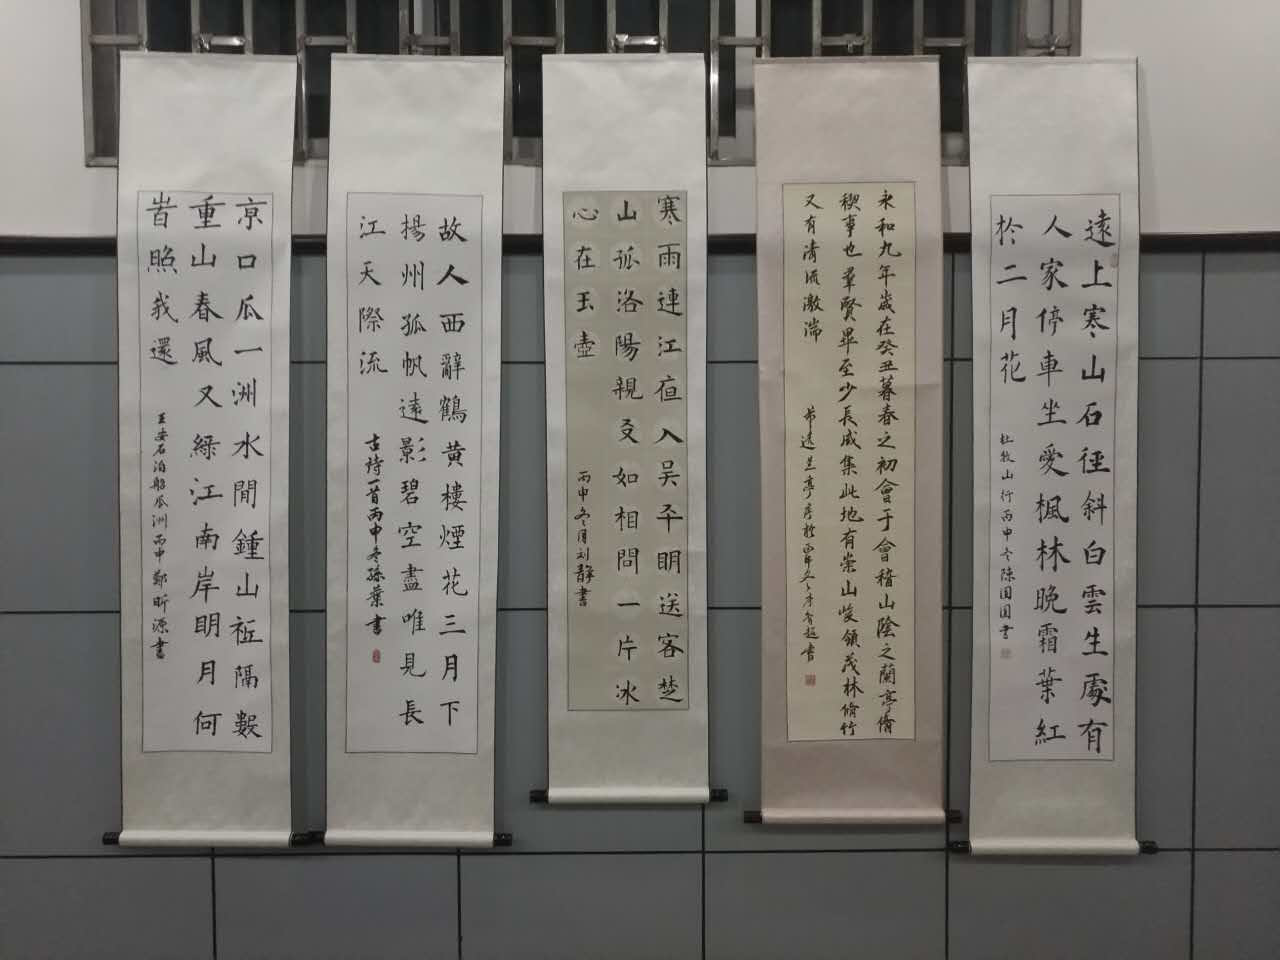 遠上寒山石徑斜白雲生處有
人家停車坐愛楓林晚霜葉紅
於二月花
杜牧山行丙申冬陳園園書
永和九年歲在癸丑暮春之初會于會稽山陰之蘭亭脩
稧事也羣賢畢至少長咸集此地有崇山峻領茂林脩竹
又有清流激湍
蘭亭序
書
寒雨連江夜入吴平眀送客楚
山孤洛陽親友如相問一片冰
心在玉壺
丙申冬月刘静書
故人西辭鶴黄樓煙花三月下
楊州孤帆遠影碧空盡唯見長
江天際流
古詩一首丙申冬孫葉書
亰口瓜一洲水間鍾山祗隔數
重山春風又綠江南岸眀月何
旹照我還
王安石泊船瓜洲丙申鄭昕源書